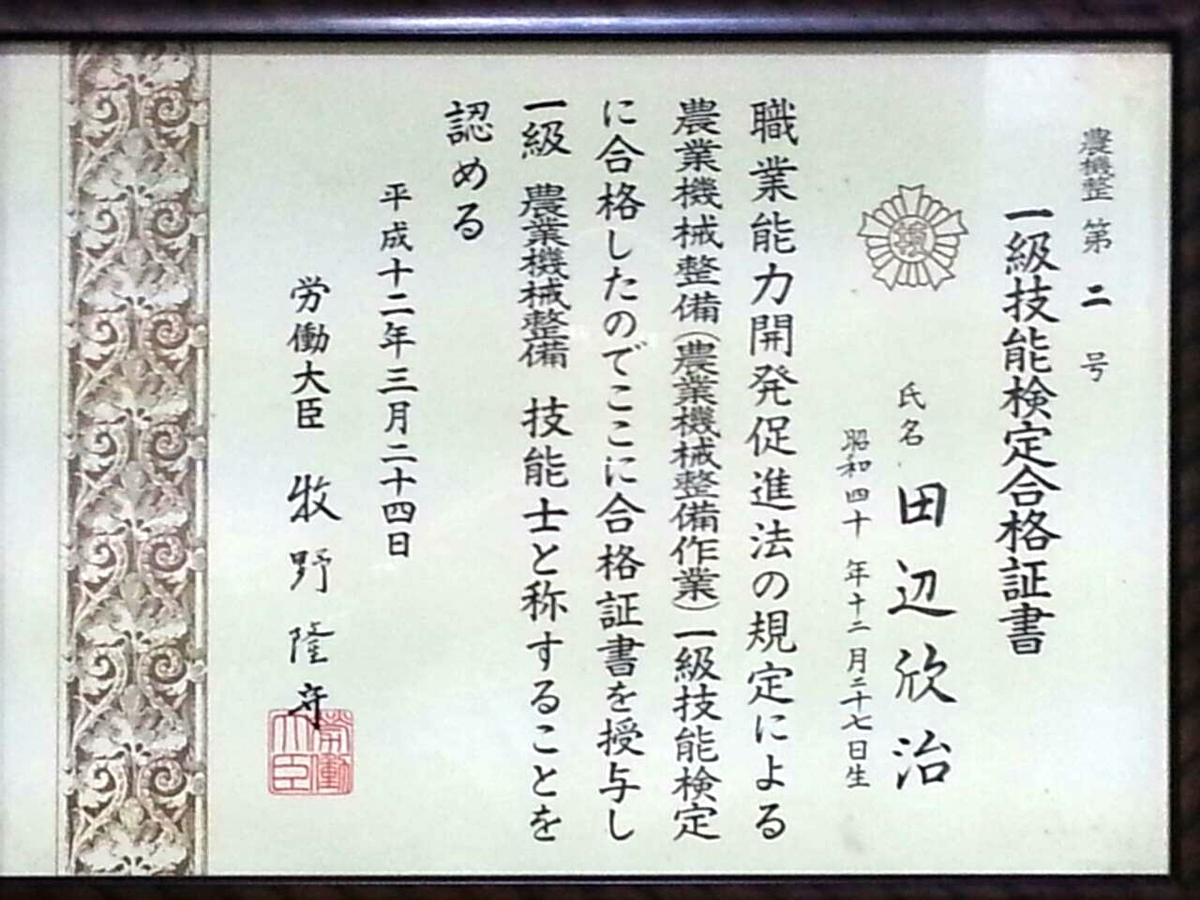 農機整 第 二 号
一級技能検定合格証書
検
氏名 田辺欣治
昭和四十 年十二月二十七日生
職業能力開発促進法の規定による
農業機械整備(農業機械整備作業)一級技能検定
に合格したのでここに合格証書を授与し
一級 農業機械整備 技能士と称することを
認める
平成十二年三月二十四日
労働大臣 牧野隆守
労働
大臣